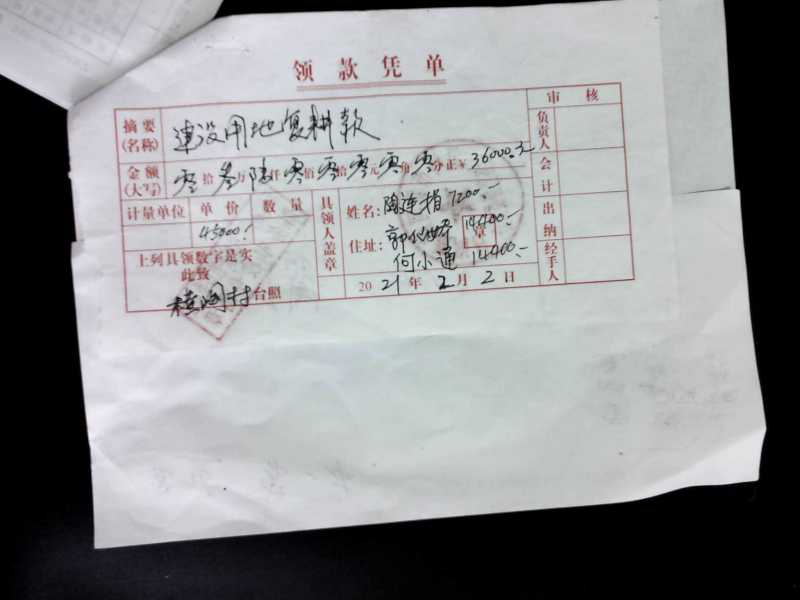 领款凭单
审核
摘要(名称) 建设用地复耕款
负责人
金额(大写) 零拾叁万陆仟零佰零拾零元零角零分正¥36000.元
会计
计量单位 单价 数量
45000.-
具领人盖章
姓名: 陶连指 7200.-
住址: 郭 14400.-
章
何小通 14400.-
出纳
上列具领数字是实
此致
村台照
经手人
2021年2月2日